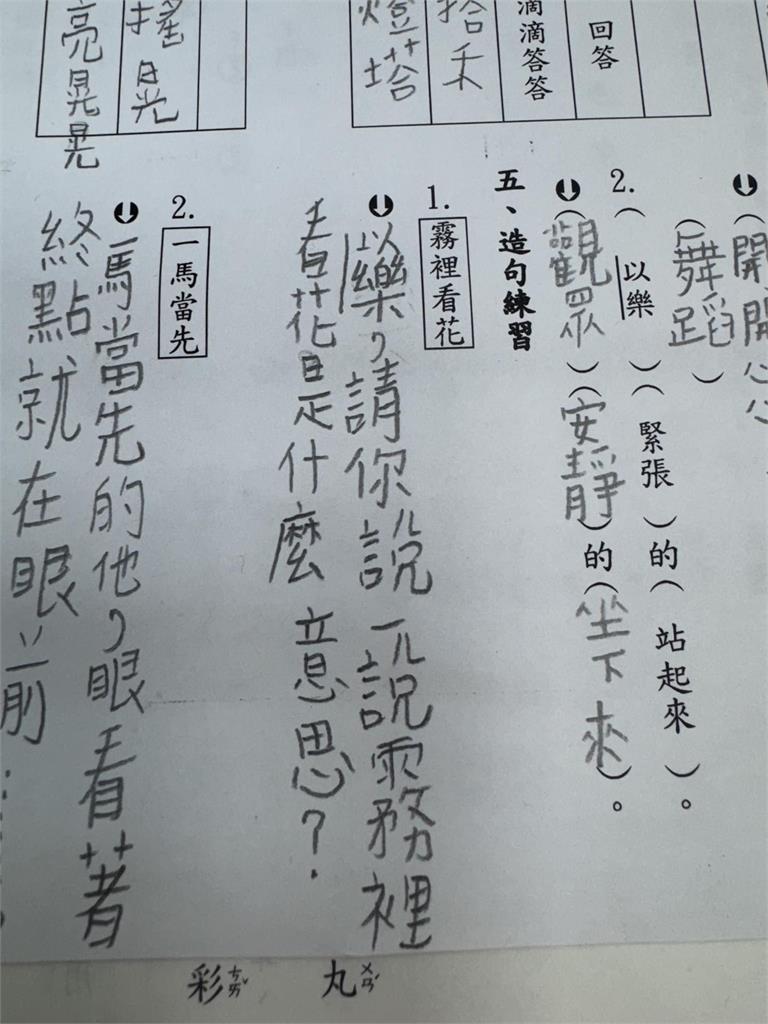 回答
滴滴答答
燈塔
搖晃
亮晃晃
(開開心心
(舞蹈)
2.(以樂)(緊張)的(站起來)。
(觀眾)(安靜)的(坐下來)。
五、造句練習
1.霧裡看花
以樂,請你說一說霧裡
看花是什麼意思?
2.一馬當先
一馬當先的他,眼看著
終點就在眼前……
丸ㄨㄢˊ
彩ㄘㄞˇ